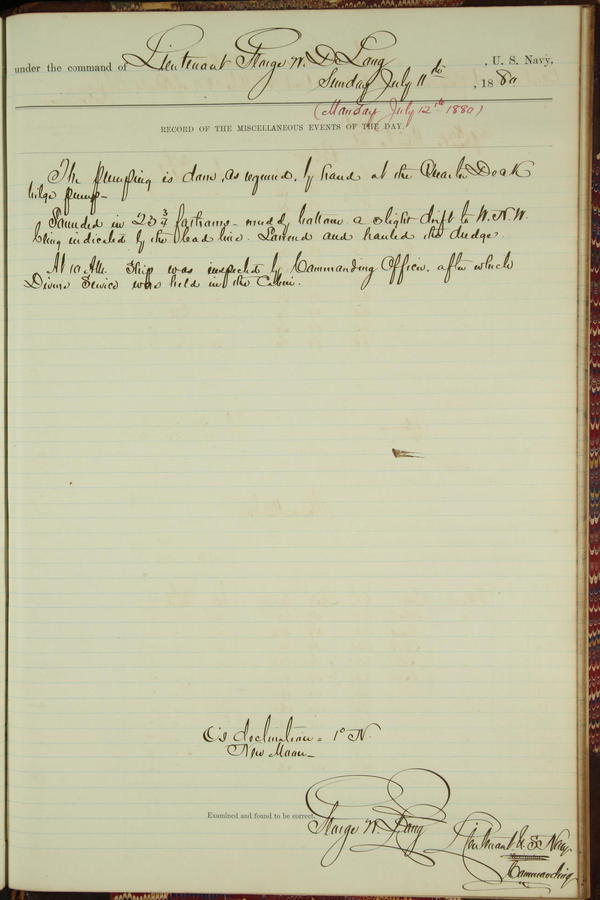 under the command of Lieutenant George W. De Long , U. S. Navy,
Sunday July 11th , 1880
(Monday July 12th 1880)
RECORD OF THE MISCELLANEOUS EVENTS OF THE DAY.
The pumping is done, as required, by hand at the Quarter Deck
bilge pump—
Sounded in 23 3/4 fathoms - muddy bottom a slight drift to W.N.W.
being indicated by the lead line. Lowered and hauled the dredge.
At 10 A.M. Ship was inspected by Commanding Officer, after which
Divine Service was held in the Cabin.
☾'s declination = 1° N.
New Moon—
Examined and found to be correct.
George W. De Long Lieutenant U.S. Navy
Commanding